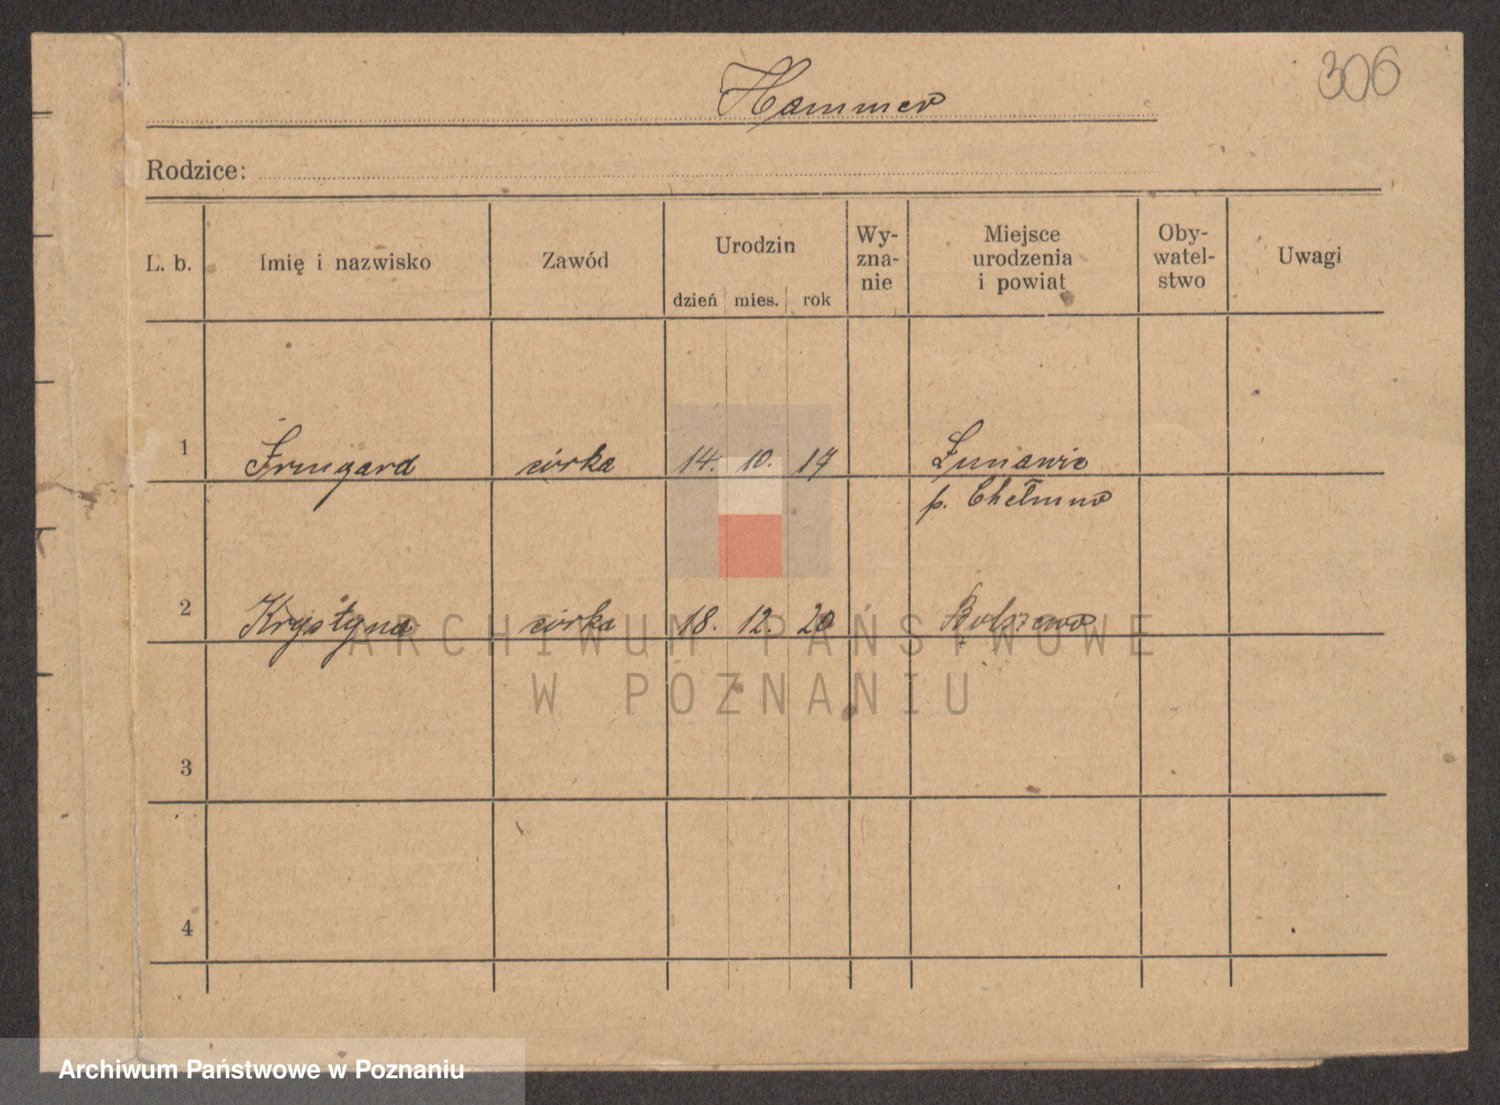 306
Hammer
Rodzice:
L. b. Imię i nazwisko Zawód Urodzin Wy- Miejsce Oby- Uwagi
zna- urodzenia watel-
nie i powiat stwo
dzień mies. rok
1 Irmgard córka 14. 10. Lunawic
p. Chełmno
2 Krystyna córka 18. 12. 20 Bolszewo
ARCHIWUM PAŃSTWOWE
W POZNANIU
3
4
Archiwum Państwowe w Poznaniu